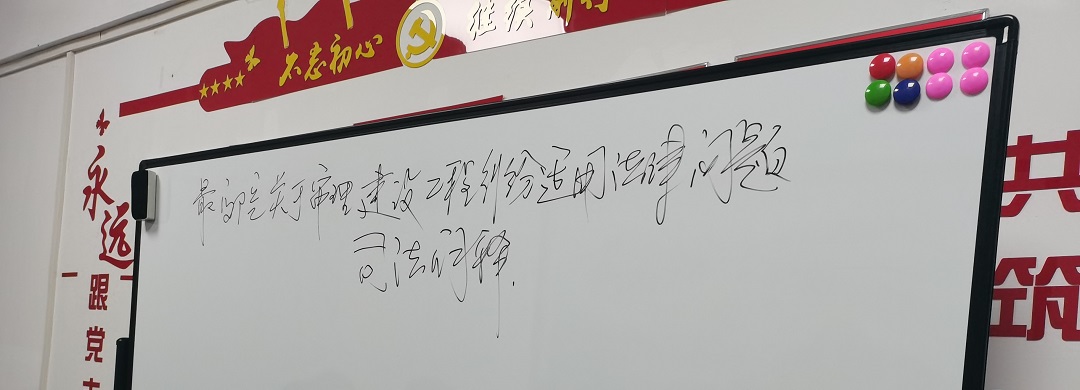 不忘初心
继续前行
永远
跟党
最高院关于审理建设工程纠纷适用法律问题
司法解释.
共
筑